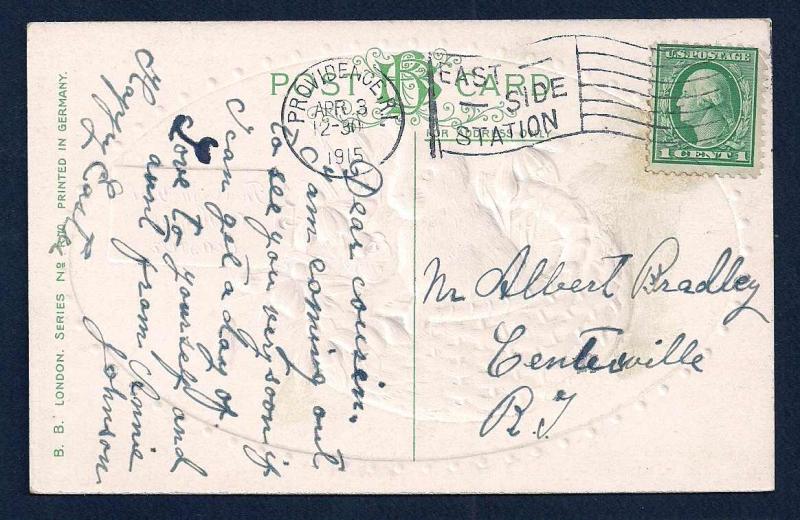 POST CARD
FOR ADDRESS ONLY
PROVIDENCE R.I.
APR 3
12-30
1915
EAST
SIDE
STATION
U.S. POSTAGE
1 CENT 1
Dear cousin.
I am coming out
to see you very soon if
I can get a day of.
Love to yourself and
aunt from Annie
Johnson
Happy Easter
Mr Albert Bradley
Centerville
R.I.
B. B. LONDON. SERIES No PRINTED IN GERMANY.